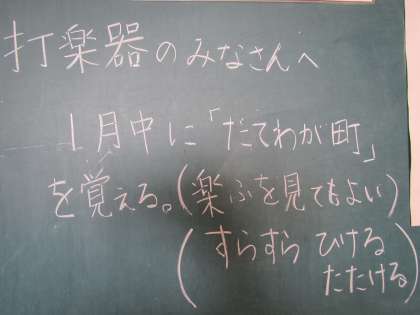 打楽器のみなさんへ
1月中に「だてわが町」
を覚える。(楽ふを見てもよい)
(すらすら ひける
たたける)